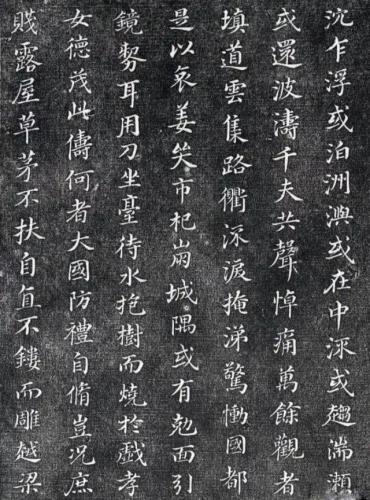 沉乍浮或泊洲嶼或在中流或趨湍瀨
或還波濤千夫共聲悼痛萬餘觀者
填道雲集路衢流淚掩涕驚慟國都
是以哀姜哭市杞崩城隅或有勊面引
鏡剺耳用刀坐臺待水抱樹而燒於戲孝
女德茂此儔何者大國防禮自脩豈況庶
賤露屋草茅不扶自直不鏤而雕越梁